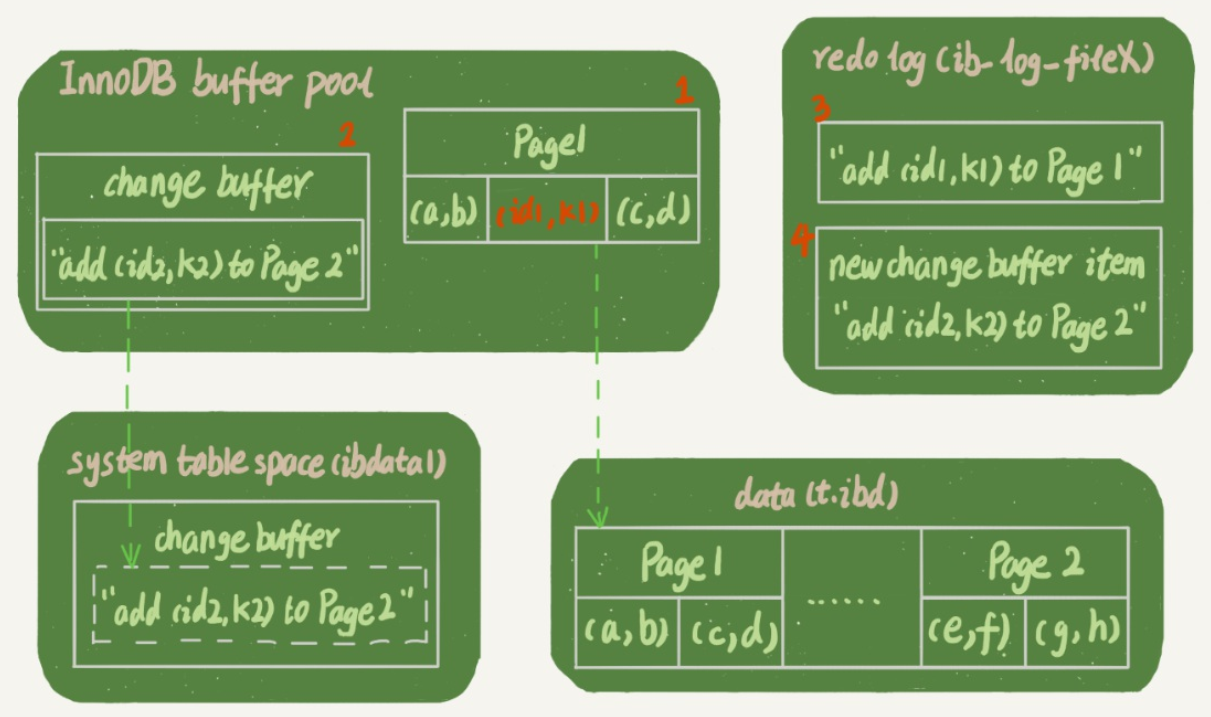 InnoDB buffer pool
1
Page1
(a,b) (id1,k1) (c,d)
2
change buffer
"add (id2,k2) to Page 2"
redo log (ib_log_fileX)
3
"add (id1,k1) to Page 1"
4
new change buffer item
"add (id2,k2) to Page 2"
system table space (ibdata1)
change buffer
"add (id2,k2) to Page 2"
data (t.ibd)
Page 1 ...... Page 2
(a,b) (c,d) (e,f) (g,h)